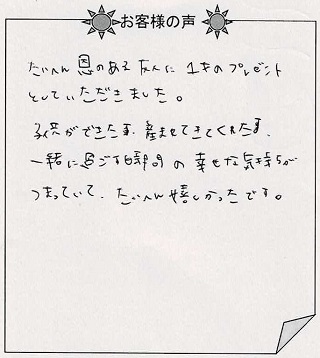 お客様の声
たいへん恩のある友人に 1才のプレゼント
としていただきました。
子供ができた事、産ませてきてくれた事、
一緒に過ごす時間の 幸せな気持ちが
つまっていて、たいへん嬉しかったです。